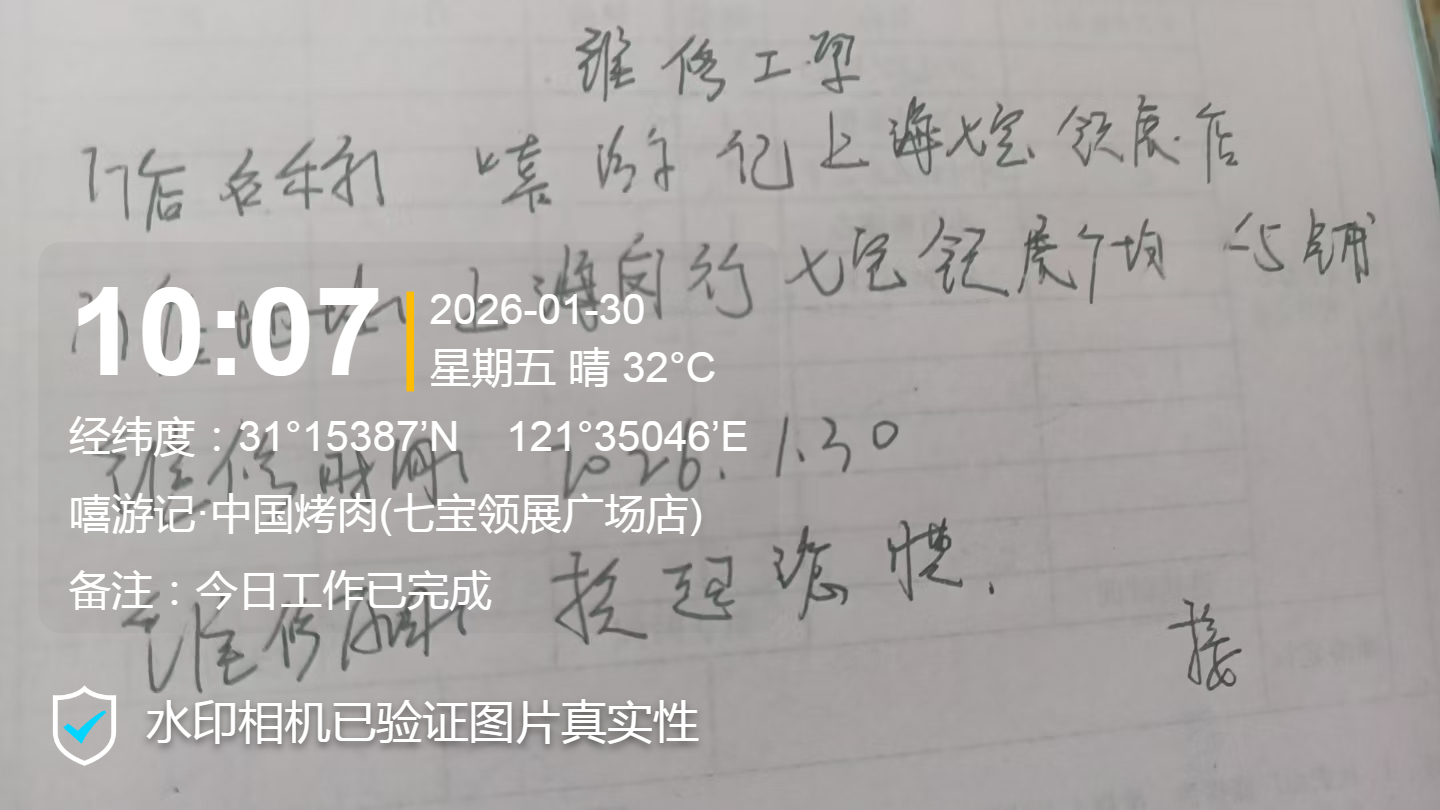 维修工单
门店名称 嘻游记上海七宝领展店
门店地址 上海闵行七宝领展广场 铺
10:07
2026-01-30
星期五 晴 32°C
经纬度：31°15387’N 121°35046’E
维修时间 2026.1.30
嘻游记·中国烤肉(七宝领展广场店)
备注：今日工作已完成
维修
接
水印相机已验证图片真实性